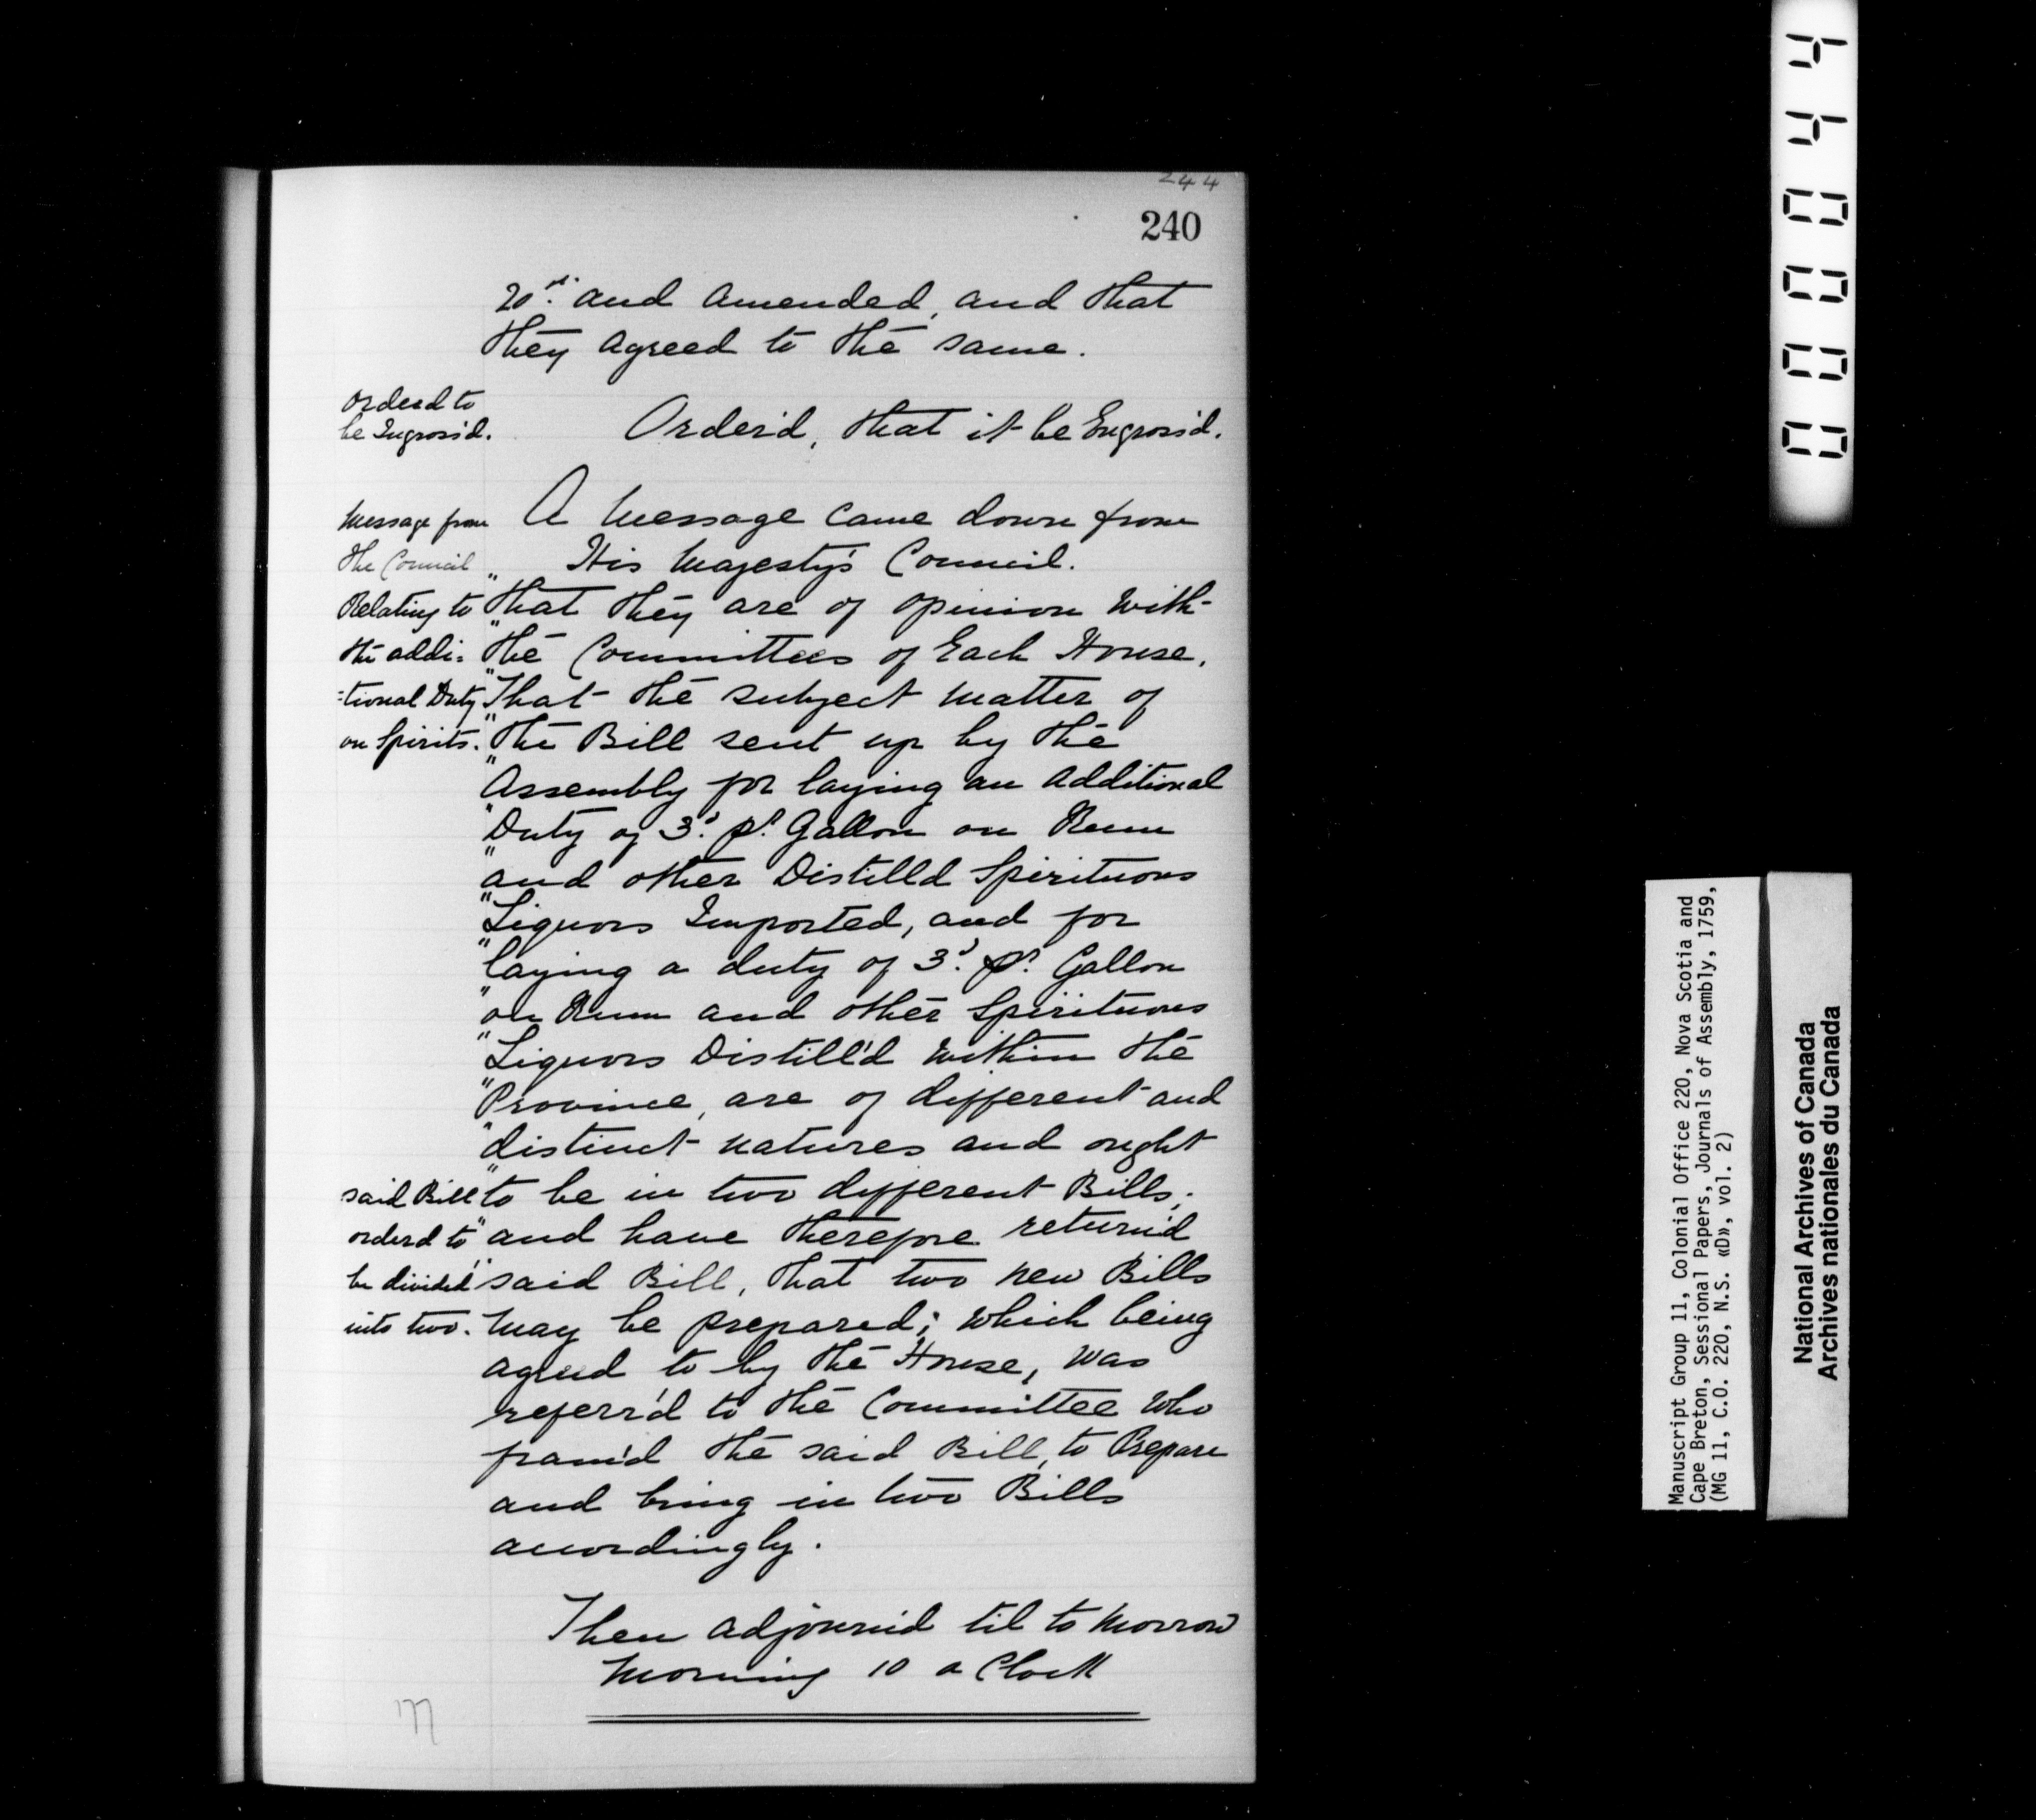 244
240
20.th and amended, and that
they agreed to the same.
Orderd to
be Ingross'd.
Order'd, that it be Engross'd.
Message from
the Council
Relating to
the addi=
=tional Duty
on Spirits.
A Message came down from
His Majesty's Council.
"that they are of opinion With-
"the Committees of Each House,
"That the subject matter of
"the Bill sent up by the
"Assembly for laying an additional
"Duty of 3.d pr. Gallon on Rum
"and other Distilld Spirituous
"Liquors Imported, and for
"laying a duty of 3.d pr. Gallon
"on Rum and other Spirituous
"Liquors Distill'd within the
"Province, are of different and
"distinct natures and ought
"to be in two different Bills,
"and have therefore return'd
"said Bill, that two new Bills
may be prepared; which being
agreed to by the House, was
referr'd to the Committee who
fram'd the said Bill, to Prepare
and bring in two Bills
accordingly.
said Bill
orderd to
be divided
into two.
Then adjourn'd til to Morrow
Morning 10 a Clock
'77
00000044
Manuscript Group 11, Colonial Office 220, Nova Scotia and
Cape Breton, Sessional Papers, Journals of Assembly, 1759,
(MG 11, C.O. 220, N.S. «D», vol. 2)
National Archives of Canada
Archives nationales du Canada